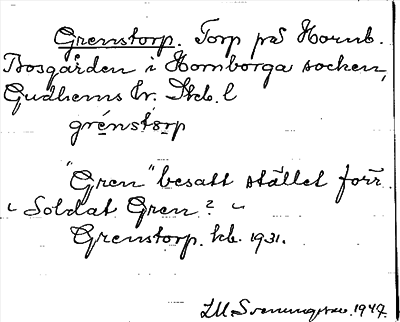 Grenstorp. Torp på Hornb.
Bosgården i Hornborga socken,
Gudhems hr. Skb. l
grénstǫrp
"Gren" besatt stället förr
"Soldat Gren?"
Grenstorp. kb. 1931.
1949.